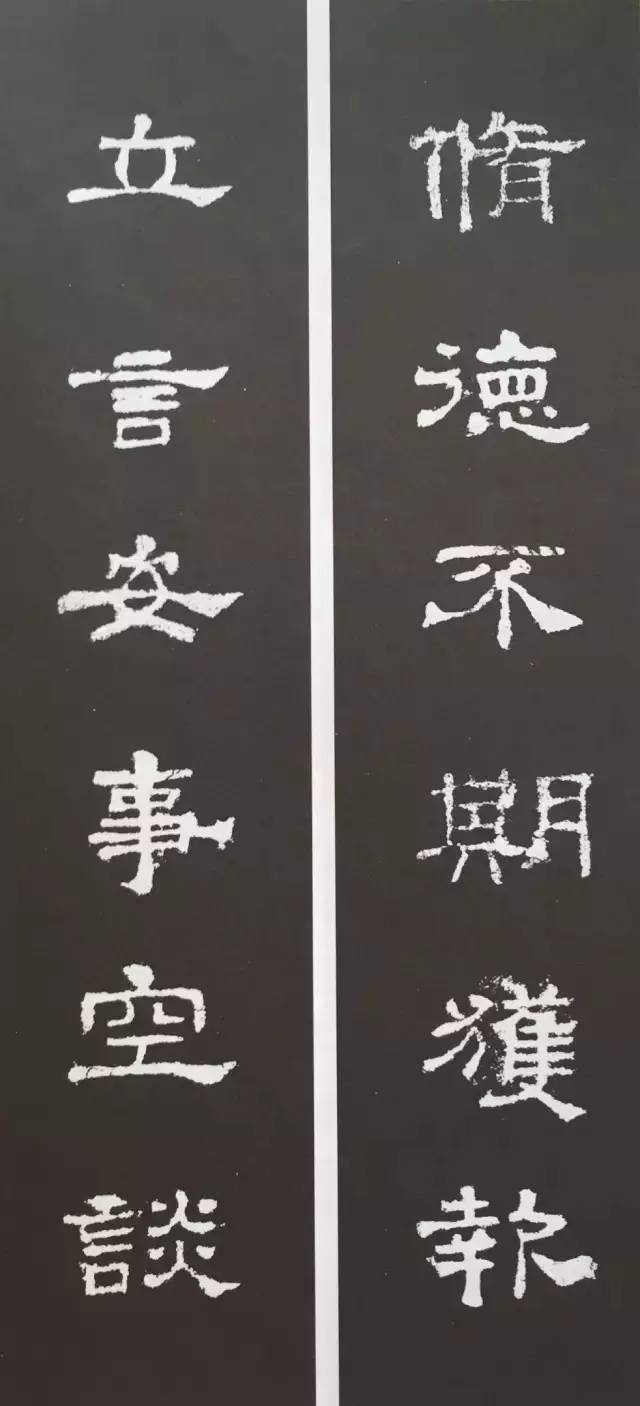 脩德不期獲報
立言安事空談